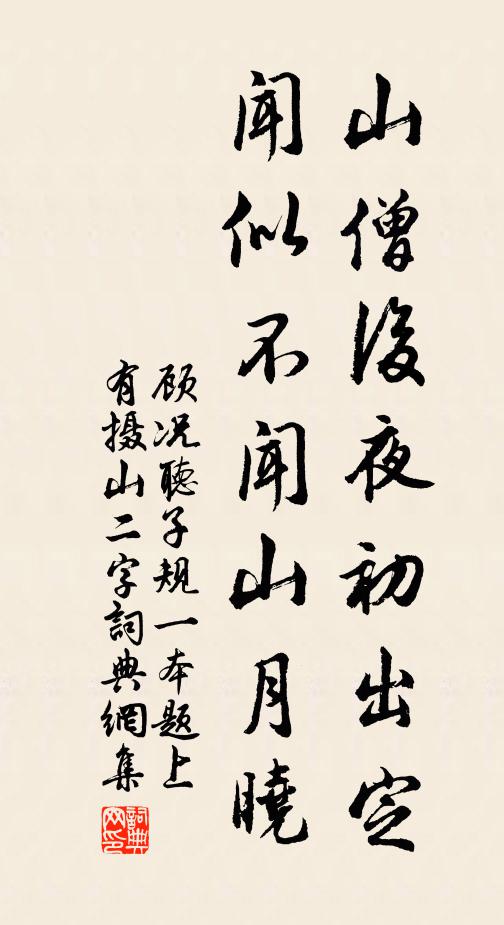 山僧後夜初出定
闻似不闻山月曉
顾况聽子规一本题上
有摄山二字詞典網集
詞典
网印